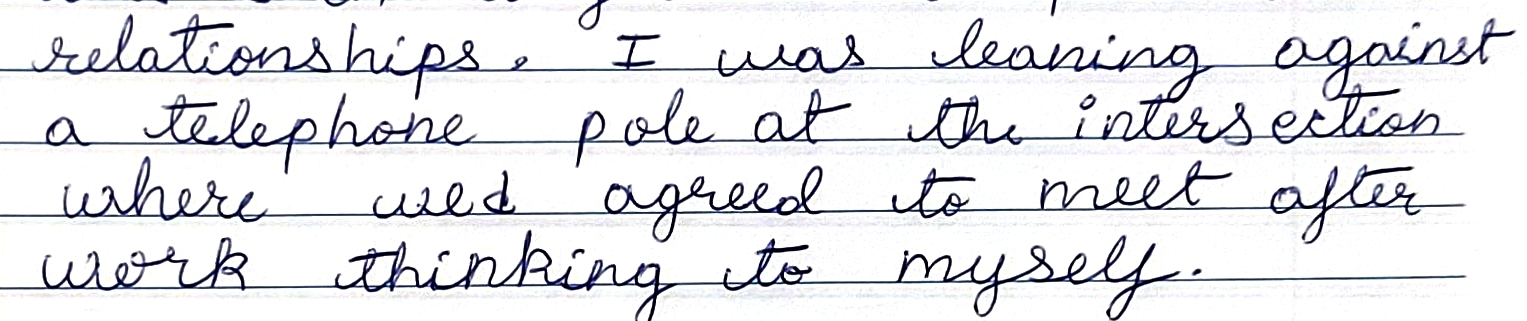 relationships. I was leaning against
a telephone pole at the intersection
where wed agreed to meet after
work thinking to myself.